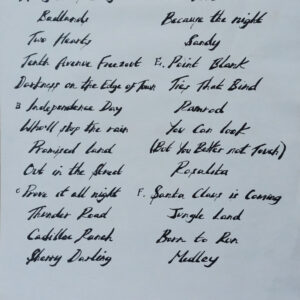 Badlands
Two Hearts
Tenth Avenue Freezout
Darkness on the Edge of Town
B Independence Day
Who'll stop the rain
Promised land
Out in the Street
C Prove it all night
Thunder Road
Cadillac Ranch
Sherry Darling
Because the night
Sandy
E. Point Blank
Ties That Bind
Ramrod
You Can look
(But You Better not Touch)
Rosalita
F. Santa Claus is Coming
Jungle Land
Born to Run
Medley